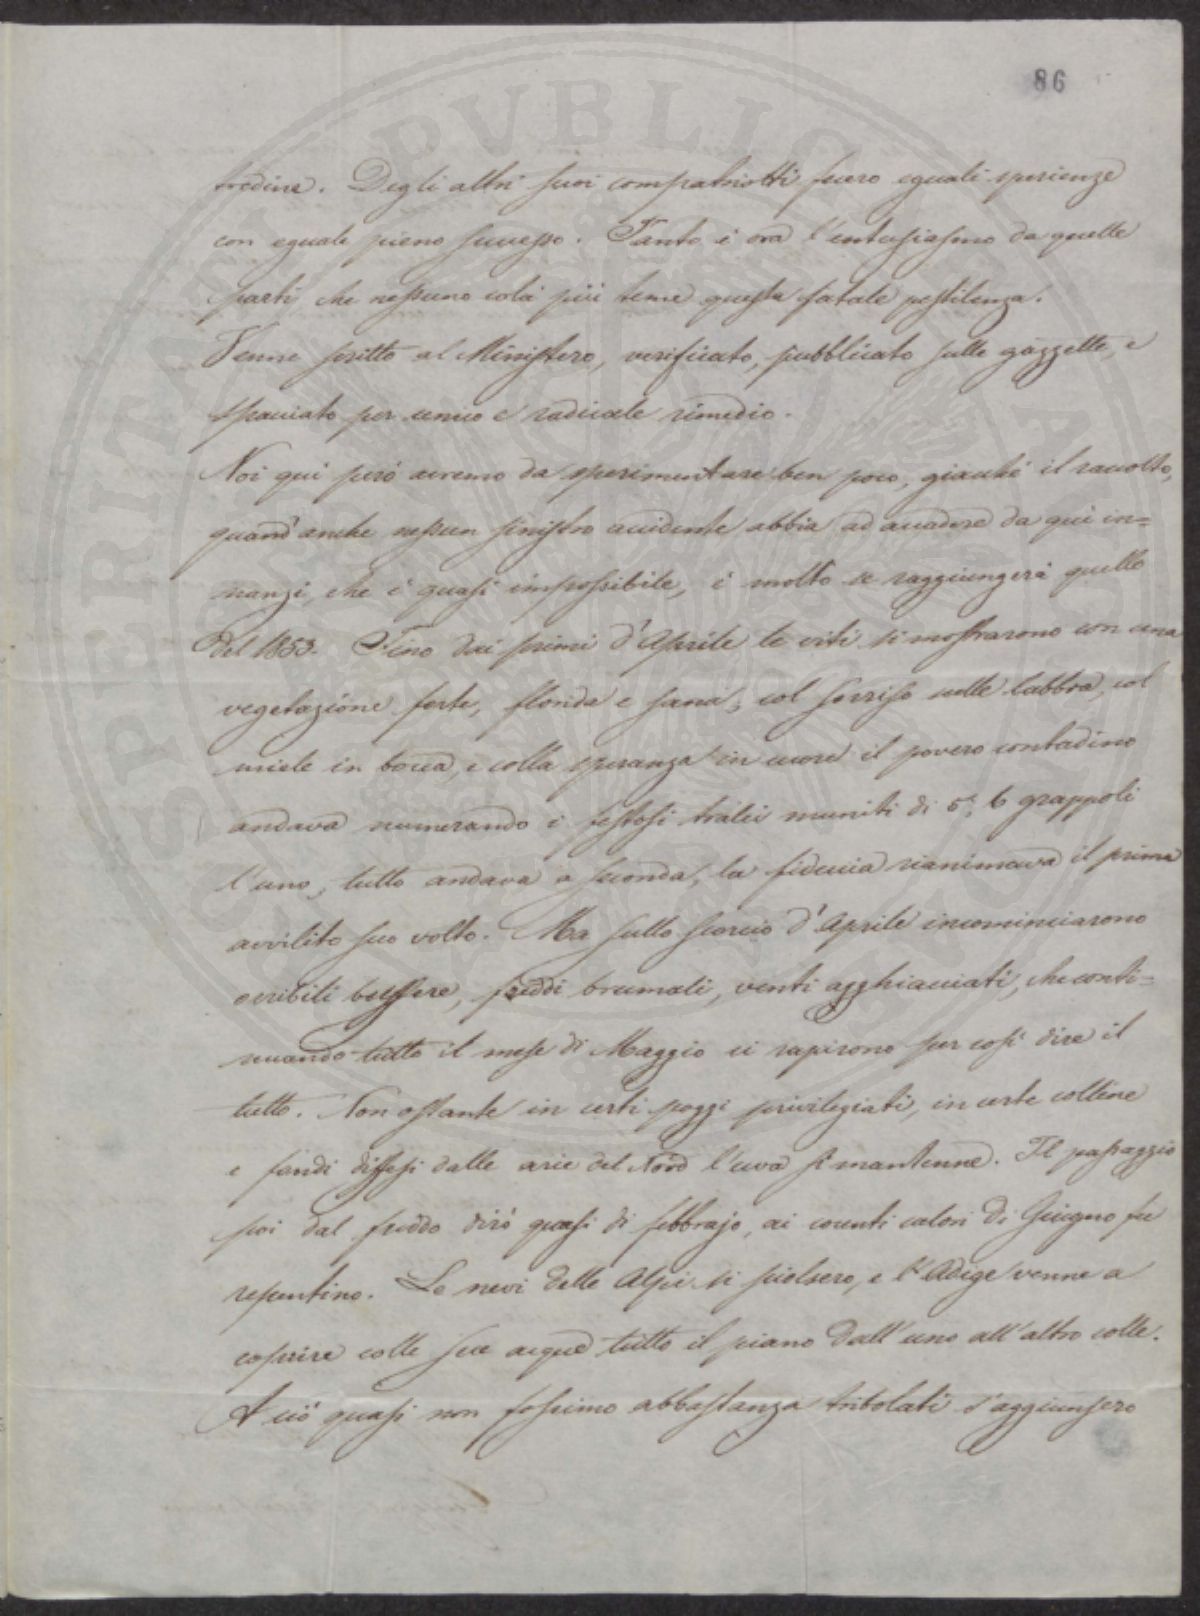 86
tredine. Degli altri suoi compatriotti fecero eguali sperienze
con eguale pieno successo. Tanto è ora l'entusiasmo da quelle
parti che nessuno colà più teme questa fatale pestilenza.
Venne scritto al Ministero, verificato, pubblicato sulle gazzette, e
spacciato per unico e radicale rimedio.
Noi qui però avremo da sperimentare ben poco, giacchè il raccolto,
quand'anche nessun sinistro accidente abbia ad accadere da qui in=
nanzi, che è quasi impossibile, è molto se raggiungerà quello
del 1853. Fino dai primi d'Aprile le viti si mostrarono con una
vegetazione forte, florida e sana; col sorriso sulle labbra, col
miele in bocca, e colla speranza in cuore il povero contadino
andava numerando i festosi tralci muniti di 5, 6 grappoli
l'uno, tutto andava a seconda, la fiducia rianimava il prima
avvilito suo volto. Ma sullo scorcio d'Aprile incominciarono
orribili bufere, freddi brumali, venti agghiacciati, che conti=
nuando tutto il mese di Maggio ci rapirono per così dire il
tutto. Non ostante in certi poggi privilegiati, in certe colline
e fondi difesi dalle arie del Nord l'uva si mantenne. Il passaggio
poi dal freddo dirò quasi di febbrajo, ai cocenti calori di Giugno fu
repentino. Le nevi delle Alpi si sciolsero, e l'Adige venne a
coprire colle sue acque tutto il piano dall'uno all'altro colle.
A ciò quasi non fossimo abbastanza tribolati s'aggiunsero